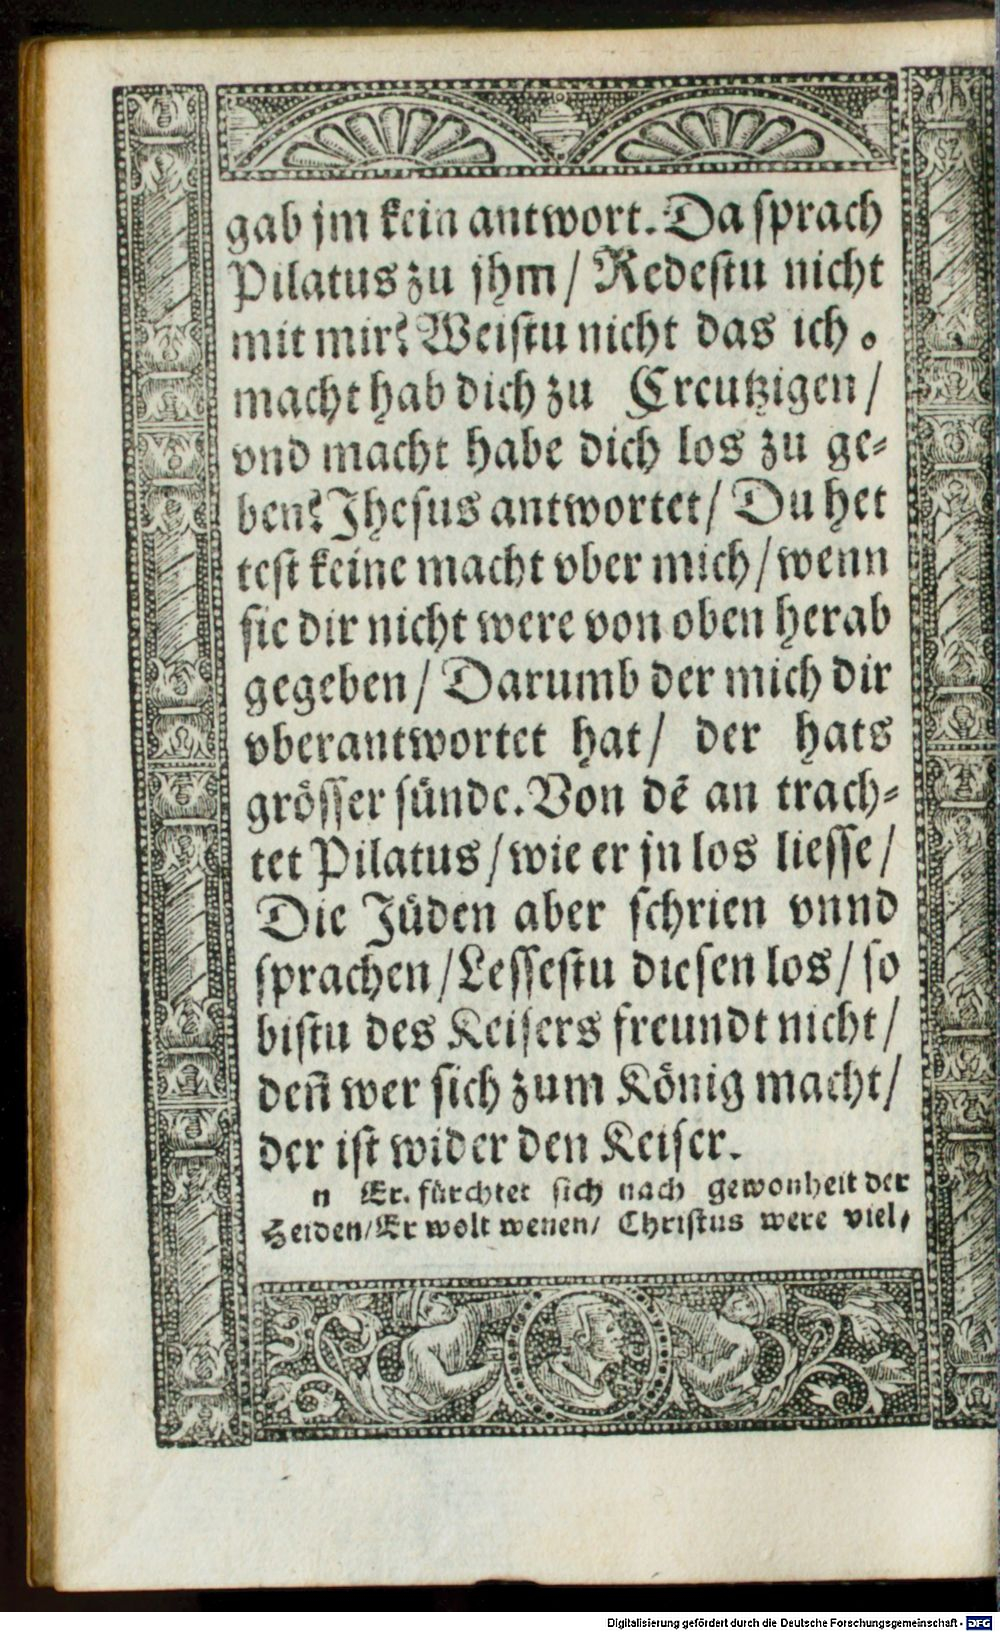 gab jm kein antwort. Da sprach
Pilatus zu jhm / Redestu nicht
mit mir? Weistu nicht das ich
macht hab dich zu Creutzigen /
vnd macht habe dich los zu ge⸗
ben? Jhesus antwortet / Du het
test keine macht vber mich / wenn
sie dir nicht were von oben herab
gegeben / Darumb der mich dir
vberantwortet hat / der hats
grösser sünde. Von dē an trach⸗
tet Pilatus / wie er jn los liesse /
Die Jüden aber schrien vnnd
sprachen / Lessestu diesen los / so
bistu des Keisers freundt nicht /
deñ wer sich zum König macht /
der ist wider den Keiser.
n Er. fürchtet sich nach gewonheit der
Heiden / Er wolt wenen / Christus were viel⸗
Digitalisierung gefördert durch die Deutsche Forschungsgemeinschaft - DFG